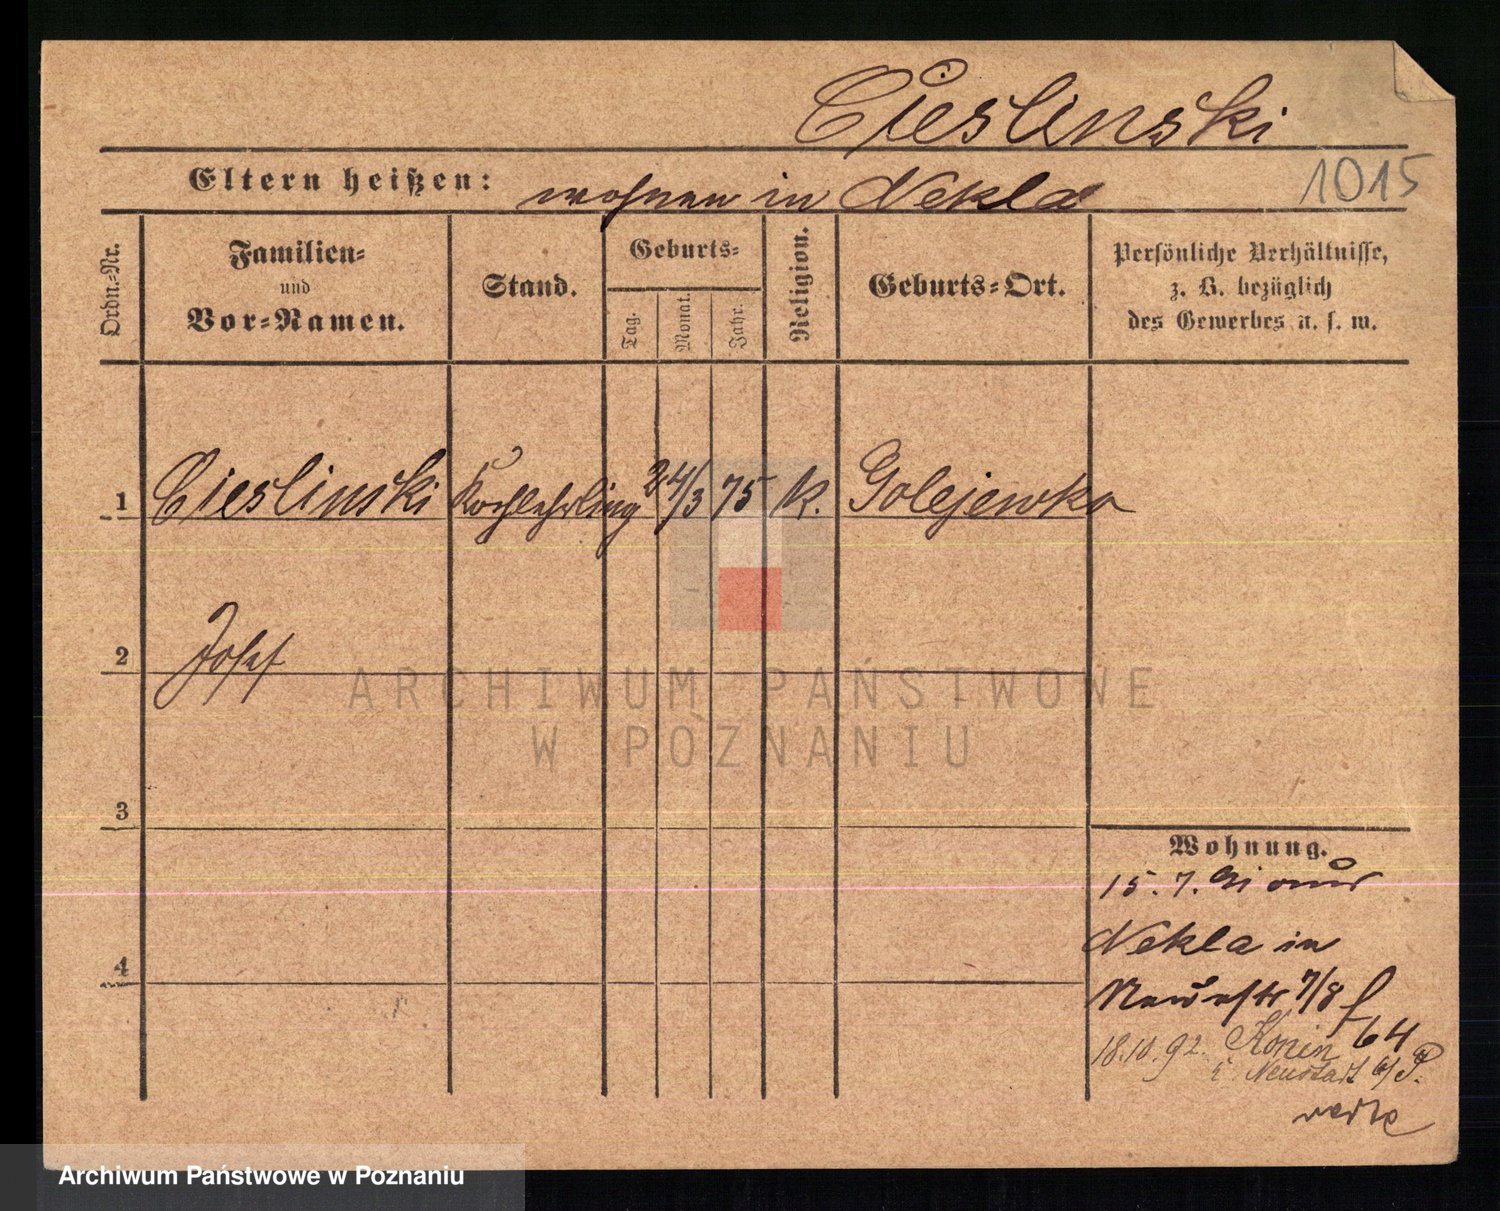 Cieslinski
Eltern heißen: wohnen in Nekla
1015
Ordn.-Nr.
Familien-
und
Vor-Namen.
Stand.
Geburts-
Tag.
Monat.
Jahr.
Religion.
Geburts-Ort.
Persönliche Verhältnisse,
z. B. bezüglich
des Gewerbes u. s. w.
1 Cieslinski Kochlehrling 24/3 75 k. Golejewko
2 Josef
3
4
Wohnung.
15. 7. 91 aus
Nekla in
Neuestr 7/8
64
18.10.92. Konin
Neustadt b/P.
ARCHIWUM PAŃSTWOWE
W POZNANIU
Archiwum Państwowe w Poznaniu